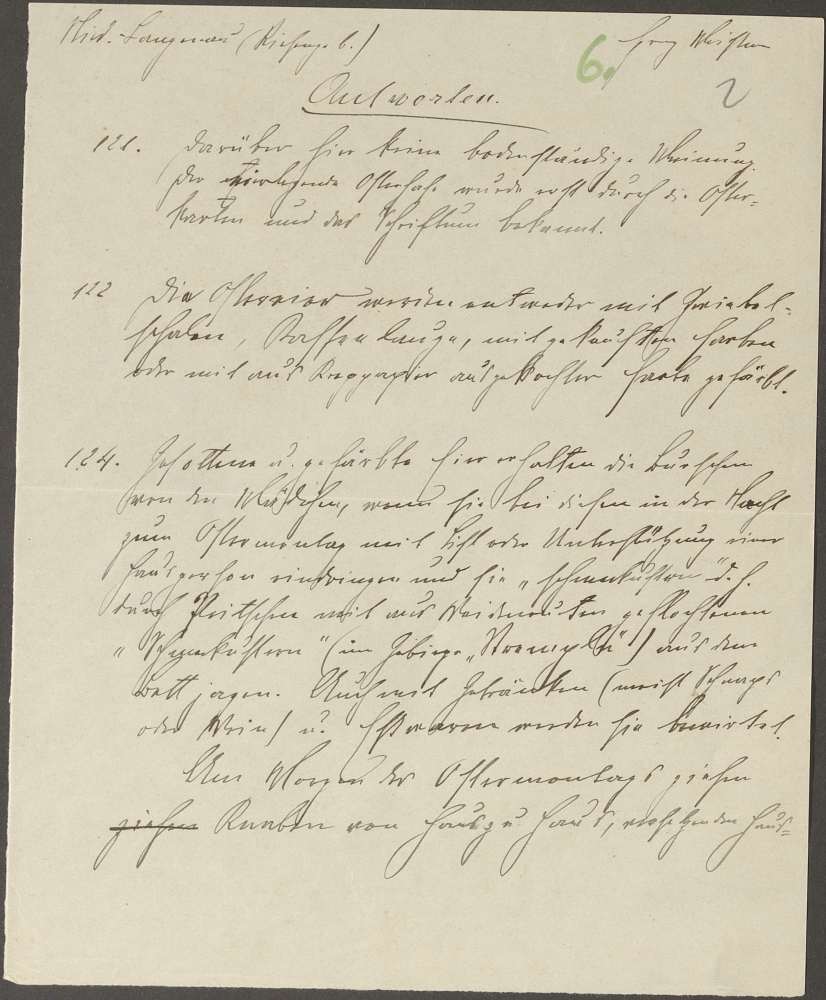 Nied.-Langenau (Riesengeb.)
6.
2
Antworten.
121. Darüber hier keine bodenständige Meinung.
Der eierlegende Osterhase wurde erst durch die Oster-
karten und das Schrifttum bekannt.
122 Die Ostereier werden entweder mit Zwiebel-
schalen, Kaffeelauge, mit gekauften Farben
oder mit aus Krepppapier ausgekochter Farbe gefärbt.
124. Gesottene u. gefärbte Eier erhalten die Burschen
von den Mädchen, wenn sie bei diesen in der Nacht
zum Ostermontag mit List oder Unterstützung einer
Hausperson eindringen und sie „schmekustern" d. h.
durch Peitschen mit aus Weidenruten geflochtenen
„Schmekustern" (im Gebirge ) aus dem
Bett jagen. Auch mit Getränken (meist Schnaps
oder Wein) u. Esswaren werden sie bewirtet.
Am Morgen des Ostermontags ziehen
ziehen Knaben von Haus zu Haus, den Haus-